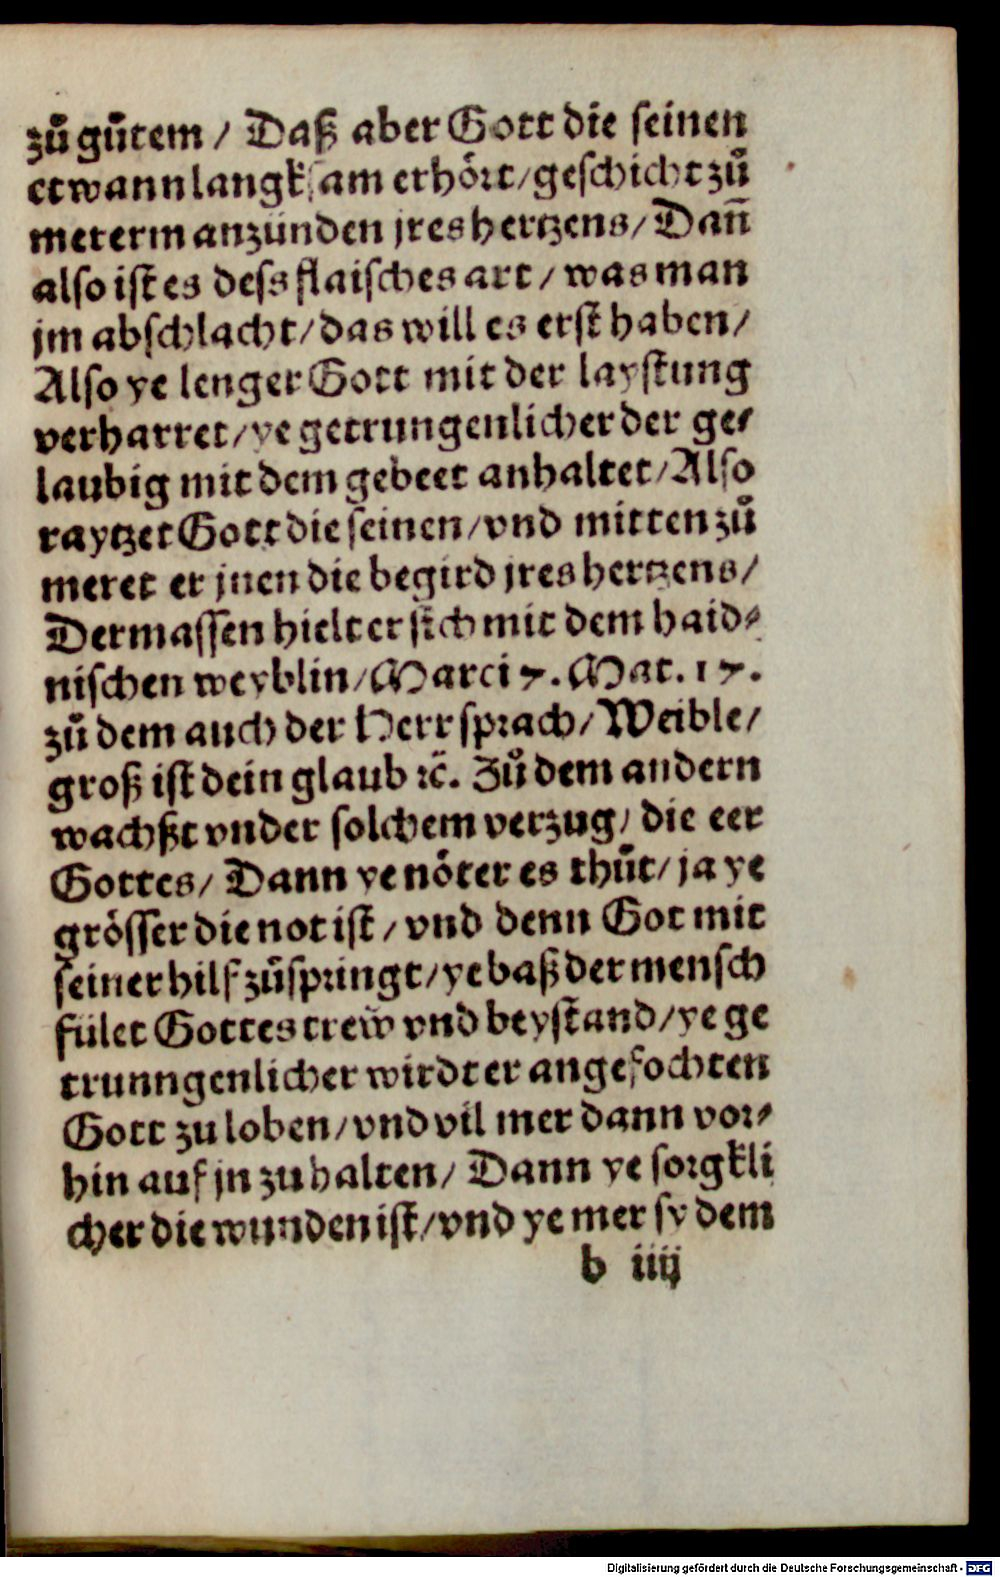 zů gůtem / Daß aber Gott die seinen
etwann langksam erhört / geschicht zů
mererm anzünden jres hertzens / Dañ
also ist es dess flaisches art / was man
jm abschlacht / das will es erst haben /
Also ye lenger Gott mit der laystung
verharret / ye getrungenlicher der ge⸗
laubig mit dem gebeet anhaltet / Also
raytzet Gott die seinen / vnd mitten zů
meret er jnen die begird jres hertzens /
Dermassen hielt er sich mit dem haid⸗
nischen weyblin / Marci 7. Mat. 17.
zů dem auch der Herr sprach / Weible /
groß ist dein glaub ꝛc̃. Zů dem andern
wachßt vnder solchem verzug / die eer
Gottes / Dann ye nöter es thůt / ja ye
grösser die not ist / vnd denn Got mit
seiner hilf zůspringt / ye baß der mensch
fület Gottes trew vnd beystand / ye ge
trunngenlicher wirdt er angefochten
Gott zu loben / vnd vil mer dann vor⸗
hin auf jn zu halten / Dann ye sorgkli
cher die wunden ist / vnd ye mer sy dem
b iiij
Digitalisierung gefördert durch die Deutsche Forschungsgemeinschaft - DFG